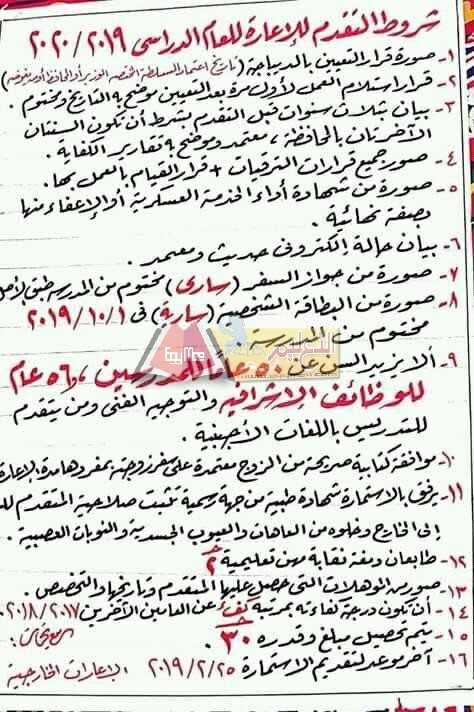 شروط التقدم للإعارة للعام الدراسى ٢٠١٩ / ٢٠٢٠
١- صورة قرار التعيين بالديباجة (تاريخ اعتماد السلطة المختصة الوزير أو المحافظ أو من يفوضه)
٢- قرار استلام العمل لأول مرة بعد التعيين موضح به التاريخ ومختوم.
٣- بيان بثلاث سنوات قبل التقدم بشرط أن تكون السنتان
الأخرتان بالمحافظة، معتمد وموضح به تقارير الكفاية.
٤- صور جميع قرارات الترقيات + قرار القيام بالعمل بها.
٥- صورة من شهادة أداء الخدمة العسكرية أو الإعفاء منها
بصفة نهائية.
٦- بيان حالة إلكترونى حديث ومعتمد.
٧- صورة من جواز السفر (سارى) مختوم من المدرسة طبق الأصل
٨- صورة من البطاقة الشخصية (سارية) فى ٢٠١٩/١٠/١
مختوم من المدرسة.
التعليم
EGYMOE
٩- ألا يزيد السن عن ٥٠ عاماً للمدرسين، ٥٦ عام
للوظائف الإشرافية والتوجيه الفنى ومن يتقدم
للتدريس باللغات الأجنبية.
١٠- موافقة كتابية صريحة من الزوج معتمدة على سفر زوجته بمفردها مدة الإعارة
١١- يرفق بالاستمارة شهادة طبية من جهة رسمية تثبت صلاحية المتقدم للسفر
إلى الخارج وخلوه من العاهات والعيوب الجسدية والنوبات العصبية.
١٢- طابعان دمغة نقابة مهن تعليمية ٢ جـ
١٣- صور من المؤهلات التى حصل عليها المتقدم وتاريخها والتخصص.
١٤- أن تكون درجة كفاءته بمرتبة كفء عن العامين الأخرين ٢٠١٨/٢٠١٧
١٥- يتم تحصيل مبلغ وقدره ٣٠.
١٦- آخر موعد لتقديم الاستمارة ٢٠١٩/٢/٢٥ الإعارات الخارجية